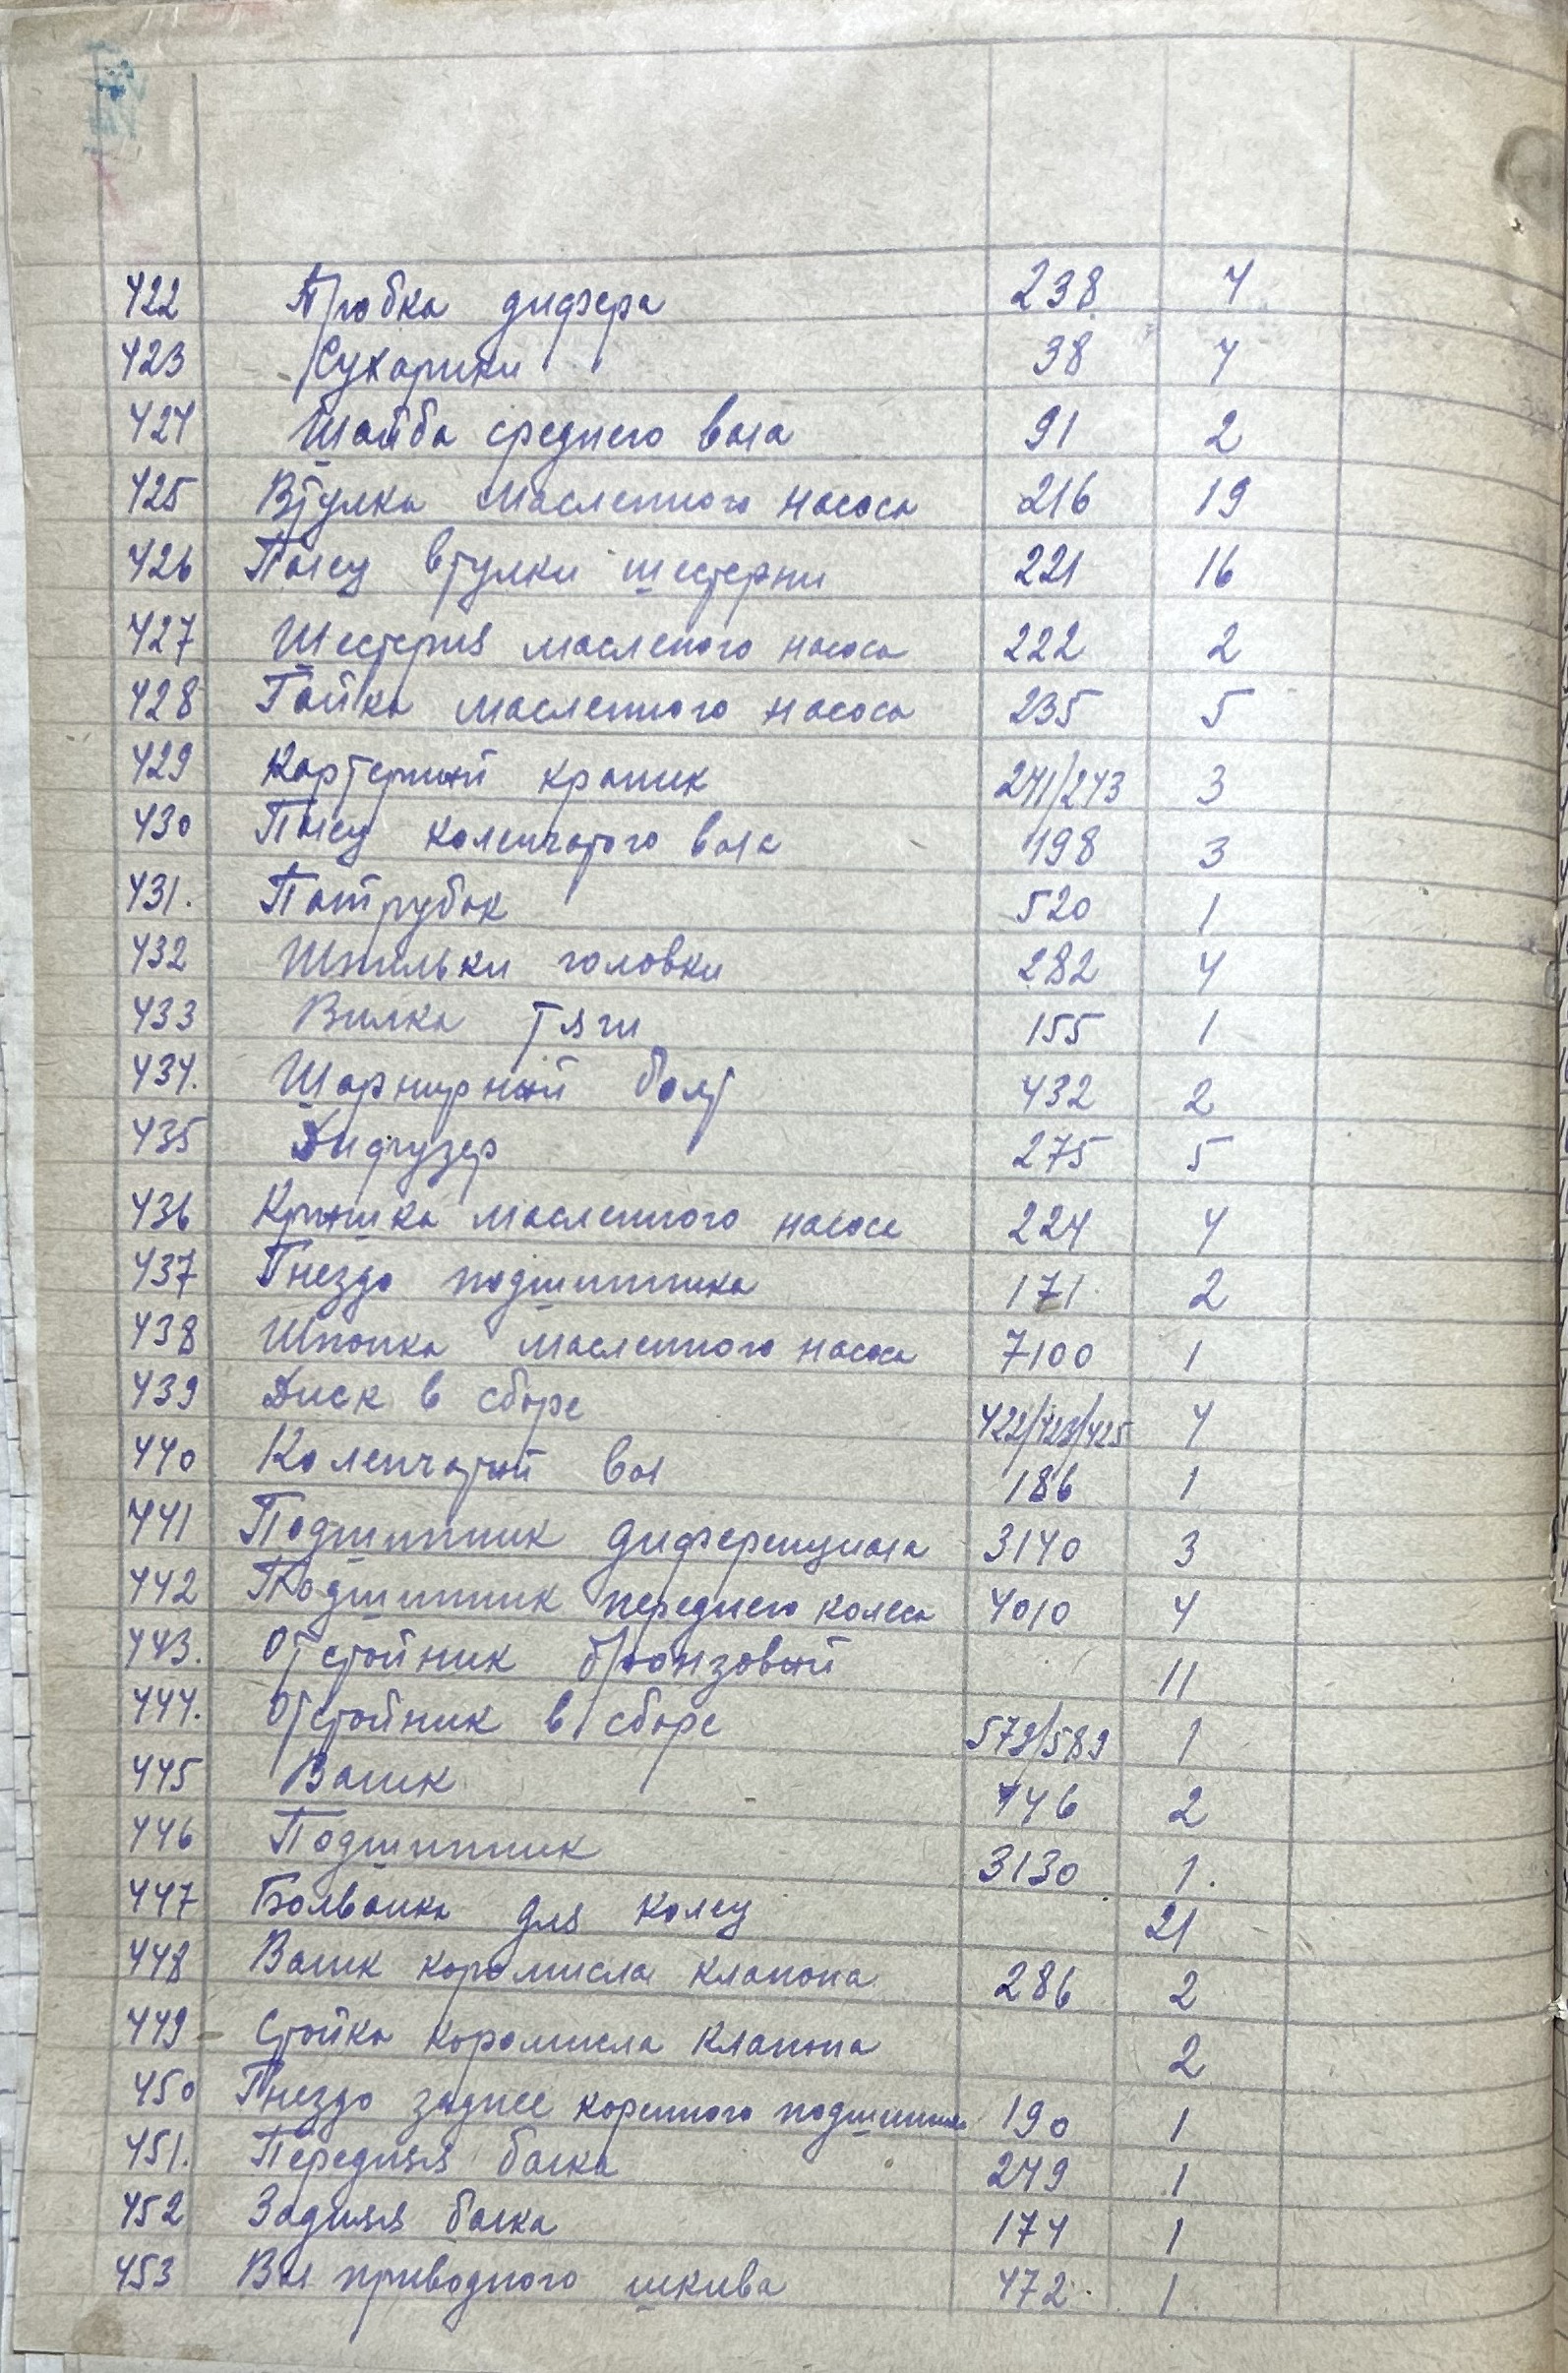 422 Пробка дифера 238 4
423 Сухарики 38 4
424 Шайба среднего вала 91 2
425 Втулка масленного насоса 216 19
426 Палец втулки шестерни 221 16
427 Шестерня масленого насоса 222 2
428 Гайка масленного насоса 235 5
429 Картерный краник 241/243 3
430 Палец коленчатого вала 198 3
431. Патрубок 520 1
432 Шпильки головки 282 4
433 Вилка тяги 155 1
434. Шарнирный болт 432 2
435 Дифузер 275 5
436 Крышка масленного насоса 224 4
437 Гнездо подшипника 171 2
438 Шпонка масленного насоса 7100 1
439 Диск в сборе 422/423/425 4
440 Коленчатый вал 186 1
441 Подшипник диференциала 3140 3
442 Подшипник переднего колеса 4010 4
443. Отстойник бронзовый 11
444. Отстойник в сборе 579/589 1
445 Валик 446 2
446 Подшипник 3130 1.
447 Болванка для колец 21
448 Валик коромисла клапона 286 2
449 Стойка коромисла клапона 2
450 Гнездо заднее коренного 190 1
451. Передняя балка 249 1
452 Задняя балка 174 1
453 Вал приводного шкива 472. 1.